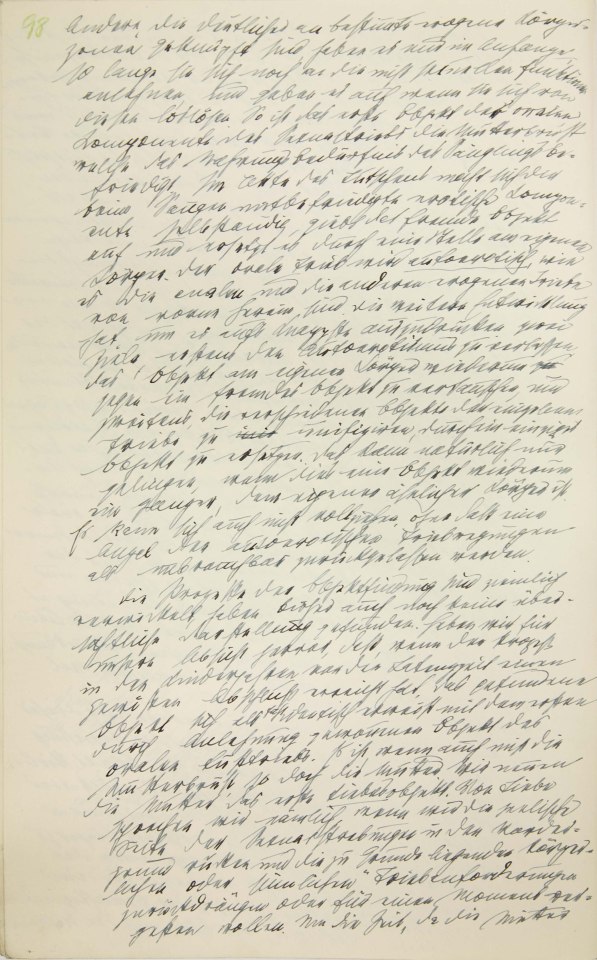 98
Andere, die deutlicher an bestimmte erogene Körper-
zonen geknüpft sind haben es nur im Anfange
so lange sie sich noch an die nicht sexuellen Funktionen
anlehnen, und geben es auf wenn sie sich von
diesen loslösen. So ist das erste Objekt der oralen
Komponente des Sexualtriebs die Mutterbrust
welche das Nahrungsbedürfnis des Säuglings be-
friedigt. Im Akte des Lutschens macht sich die
beim Saugen mitbefriedigte erotische Kompon-
ente selbständig, giebt das fremde Objekt
auf und ersetzt es durch eine Stelle am eigenen
Körper. Der orale Trieb wird autoerotisch, wie
es die analen und die anderen erogenen Triebe
von vorne herein sind. Die weitere Entwicklung
hat, um es aufs knappste auszudrücken zwei
Ziele: erstens den Autoerotismus zu verlassen,
das Objekt am eigenen Körper wiederum
gegen ein fremdes Objekt zu vertauschen, und
zweitens, die verschiedenen Objekte der einzelnen
Triebe zu unifizieren, durch ein einziges
Objekt zu ersetzen. Das kann natürlich nur
gelingen, wenn dies eine Objekt wiederum
ein ganzer, dem eigenen ähnlicher Körper ist.
Es kann sich auch nicht vollziehen, ohne daß eine
Anzahl der autoerotischen Triebregungen
als unbrauchbar zurückgelassen werden.
Die Prozesse der Objektfindung sind ziemlich
verwickelt, haben bisher auch noch keine über-
sichtliche Darstellung gefunden. Heben wir für
unsere Absicht hervor, daß, wenn der Prozeß
in den Kinderjahren vor der Latenzzeit einen
gewissen Abschluß erreicht hat, das gefundene
Objekt sich als fast identisch erweist mit dem ersten
durch Anlehnung gewonnenen Objekt des
oralen Lusttriebs. Es ist, wenn auch nicht die
Mutterbrust, so doch die Mutter. Wir nennen
die Mutter das erste Liebesobjekt. Von Liebe
sprechen wir nämlich, wenn wir die seelische
Seite der Sexualstrebungen in den Vorder-
grund rücken und die zu Grunde liegenden körper-
lichen oder „sinnlichen“ Triebanforderungen
zurückdrängen oder für einen Moment ver-
gessen wollen. Um die Zeit, da die Mutter